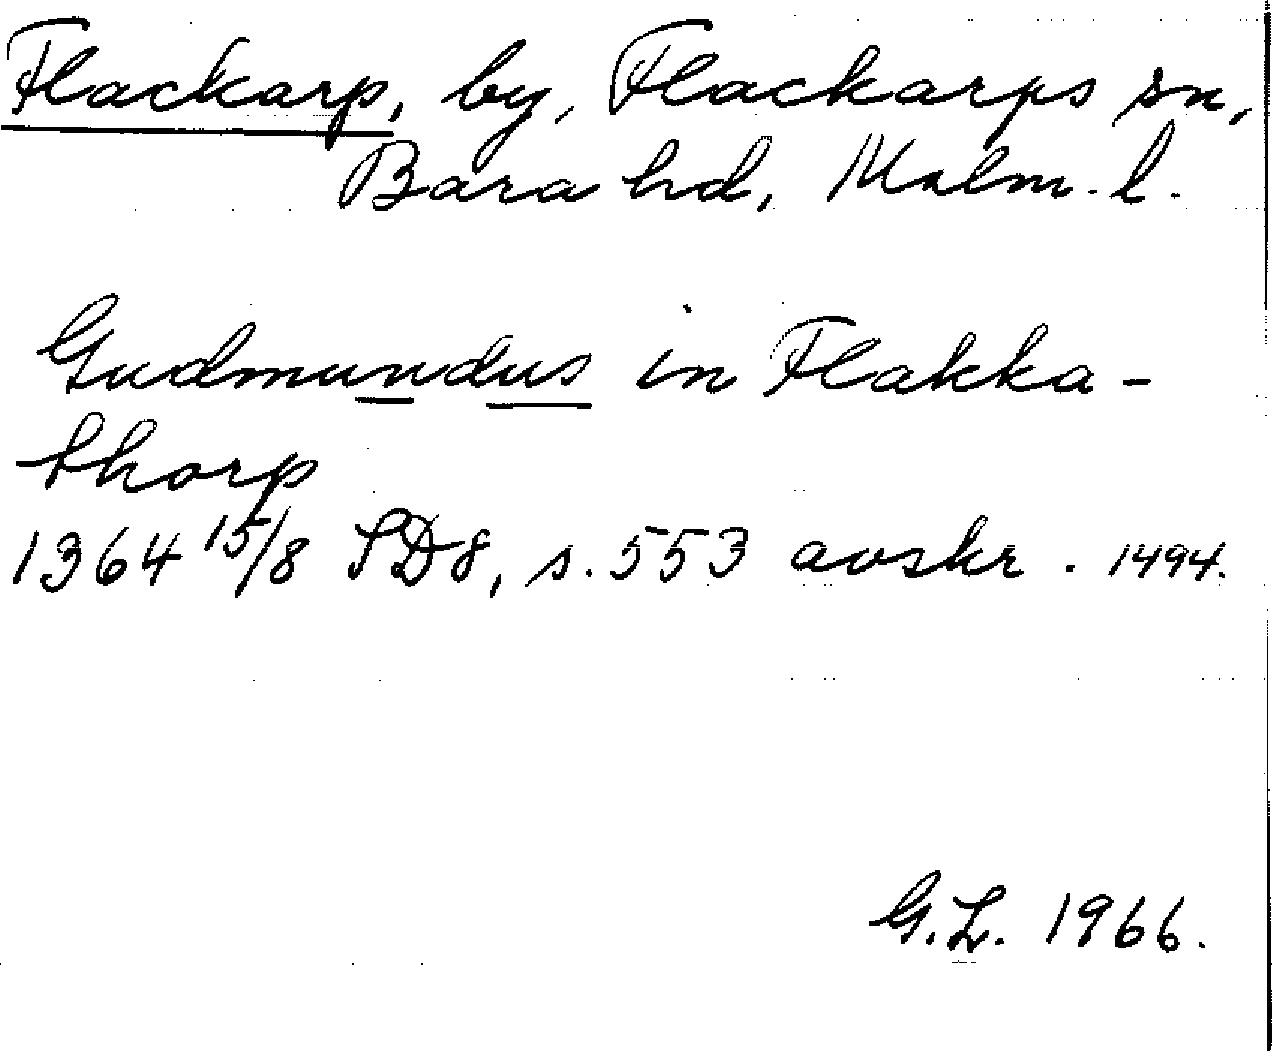 Flackarp, by, Flackarps sn,
Bara hd, Malm. l.
Gudmundus in Flakka-
thorp
1364 15/8 SD8, s. 553 avskr. 1494.
G.L. 1966.